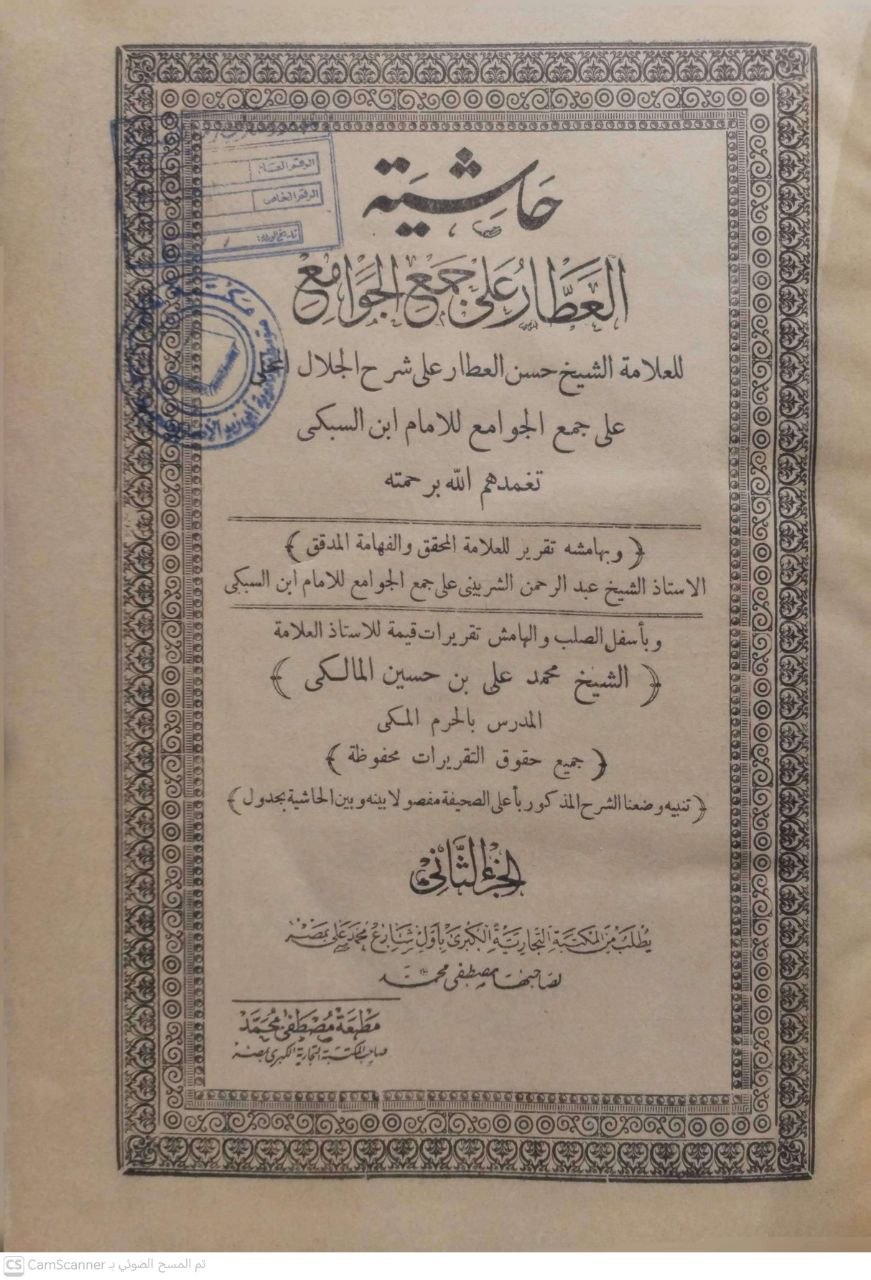 الرقم العام:
الرقم الخاص
تاريخ الورود: /
حَاشِيَة
العَطَّار عَلَى جَمْع الجَوَامِع
للعلامة الشيخ حسن العطار على شرح الجلال المحلى
على جمع الجوامع للامام ابن السبكى
تغمدهم الله برحمته
﴿ وبهامشه تقرير للعلامة المحقق والفهامة المدقق ﴾
الاستاذ الشيخ عبد الرحمن الشربينى على جمع الجوامع للامام ابن السبكى
وبأسفل الصلب والهامش تقريرات قيمة للاستاذ العلامة
﴿ الشيخ محمد على بن حسين المالكى ﴾
المدرس بالحرم المكى
﴿ جميع حقوق التقريرات محفوظة ﴾
﴿ تنبيه وضعنا الشرح المذكور بأعلى الصحيفة مفصولا بينه وبين الحاشية بجدول ﴾
الجُزءُ الثَّانِى
يُطْلَبُ مِنَ المَكْتَبَةِ التِّجَارِيَّةِ الكُبْرَى بِأَوَّلِ شَارِعِ مُحَمَّد عَلى بِمِصْر
لصاحبها مصطفى محمد
مَطْبَعَةُ مُصْطَفَى مُحَمَّد
صاحب المكتبة التجارية الكبرى بمصر
CS CamScanner تم المسح الضوئي بـ